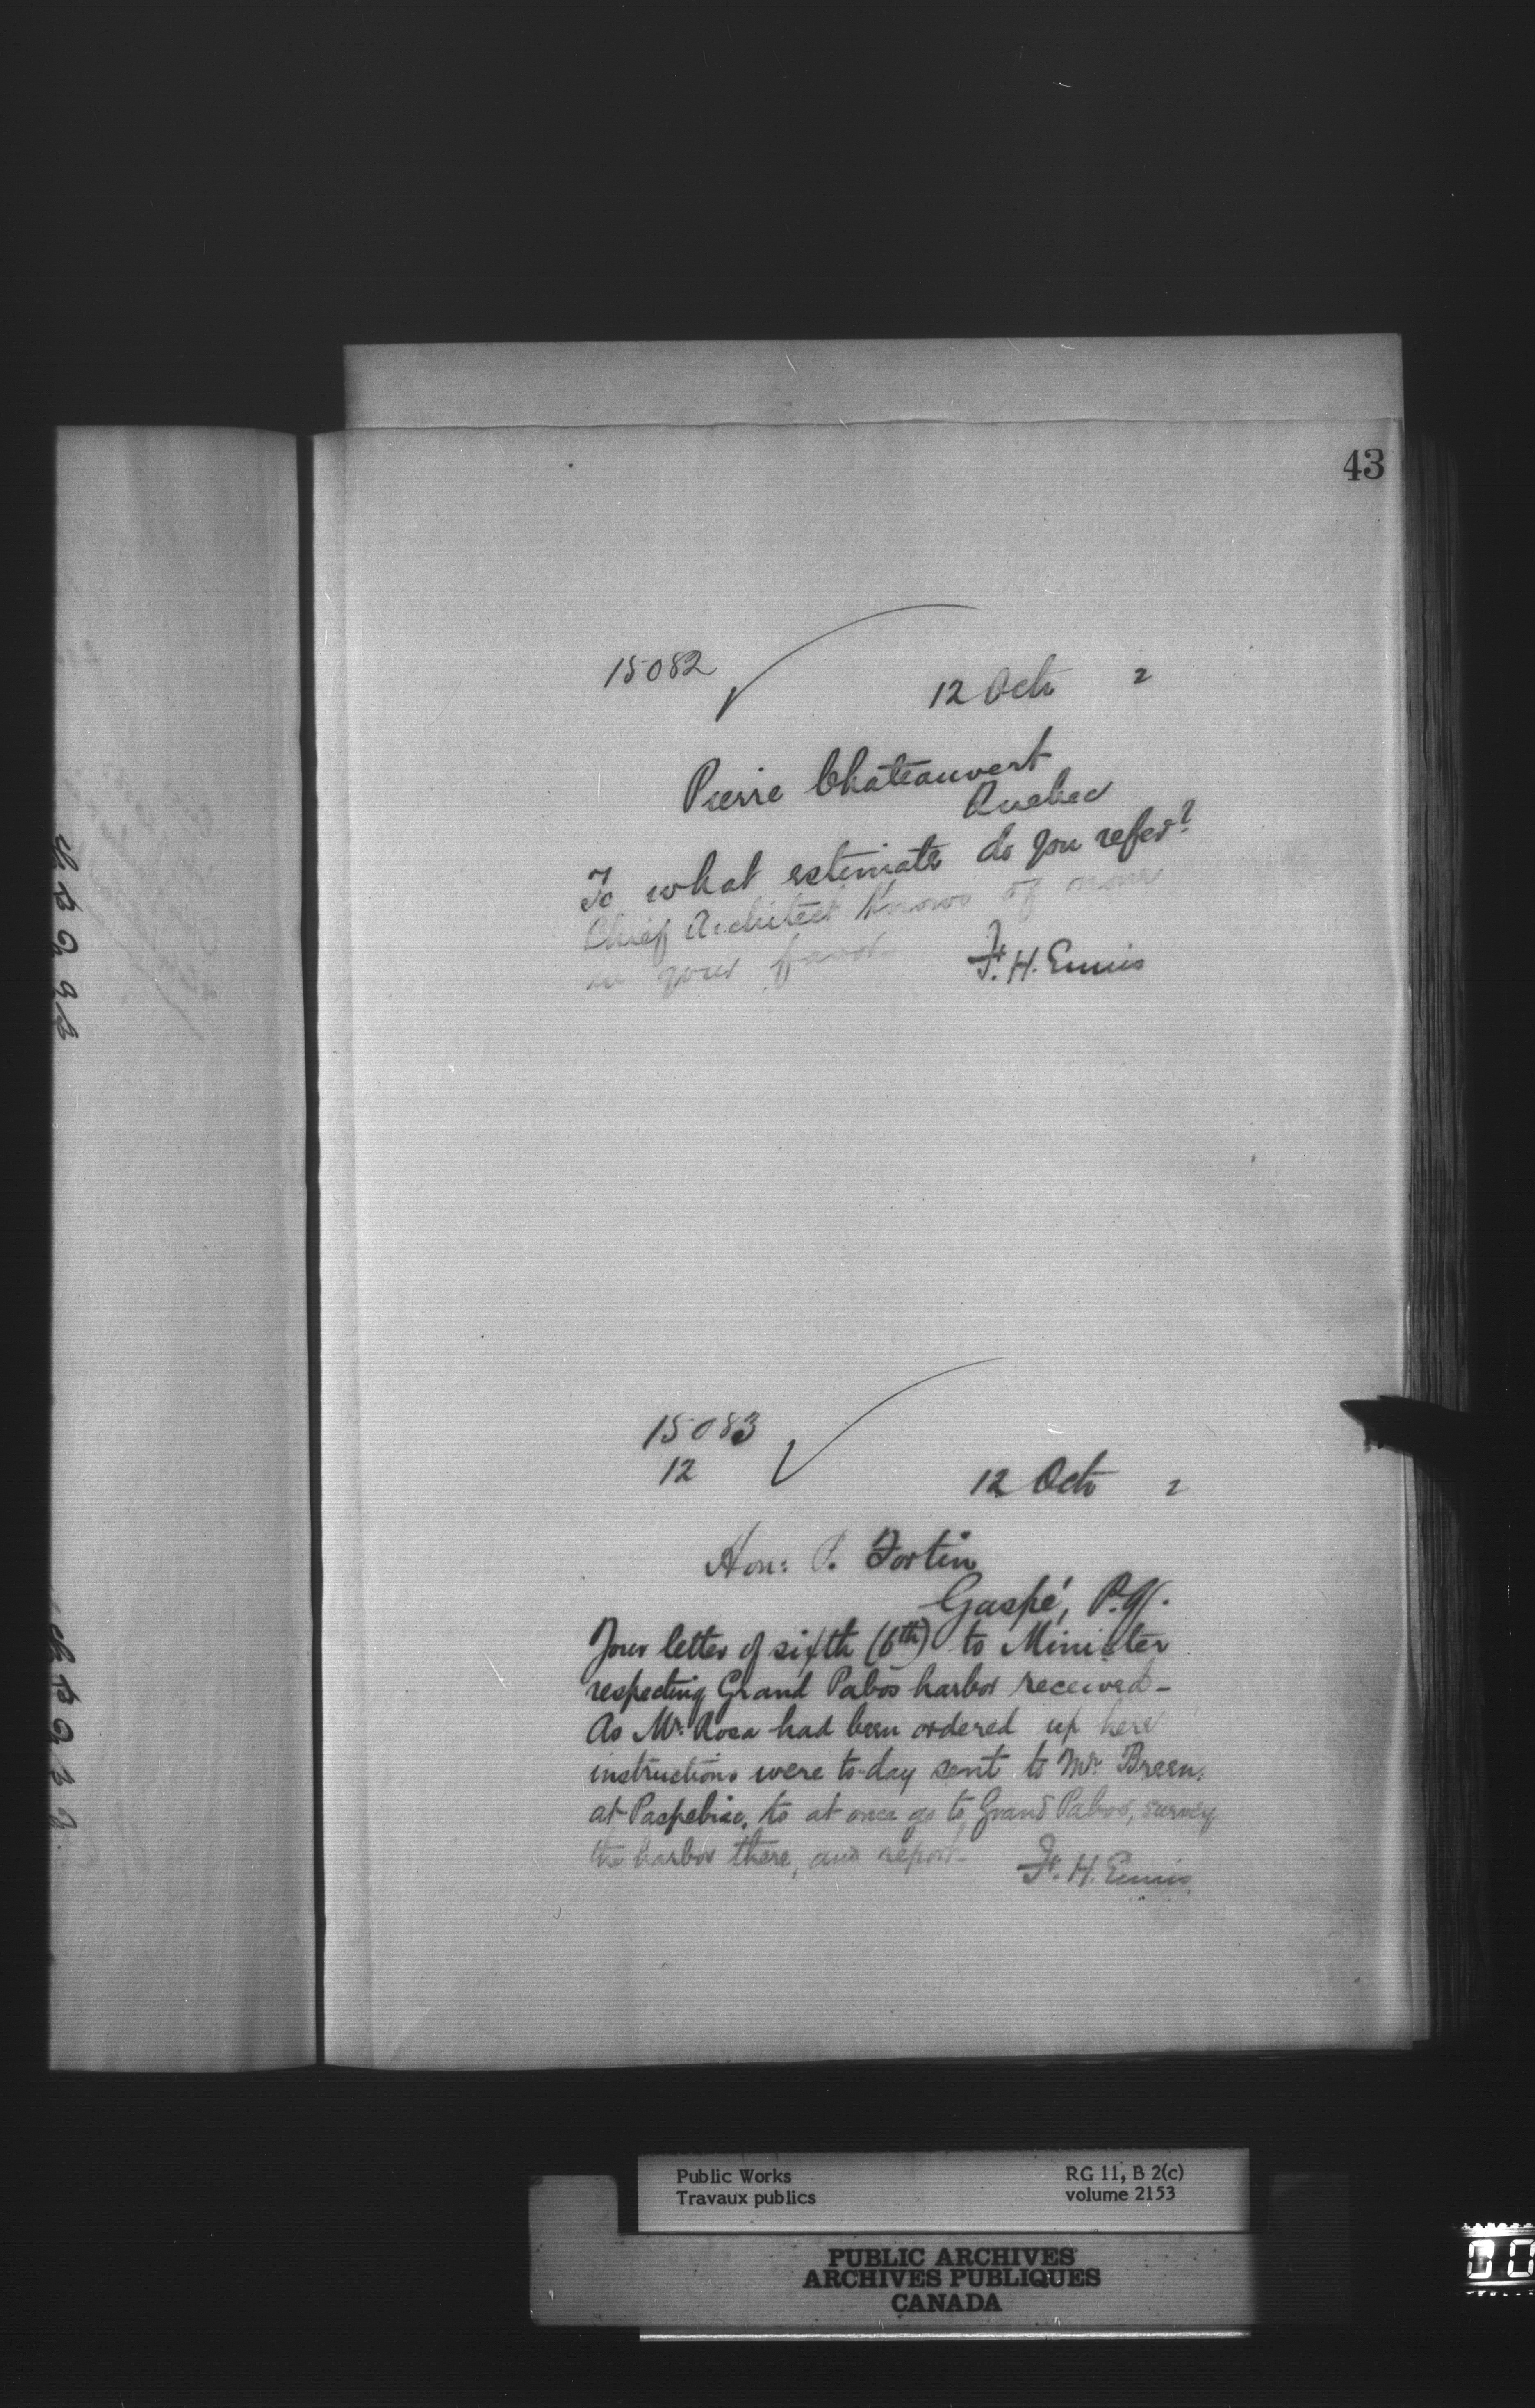 43
15082
12 Octr 2
Pierre Chateauvert
Quebec
To what estimate do you refer?
Chief Architect knows of none
in your favor—
F. H. Ennis
15083
12
12 Octr 2
Hon: P. Fortin
Gaspé, P.Q.
Your letter of sixth (6th) to Minister
respecting Grand Pabos harbor received—
As Mr. Rosa had been ordered up here
instructions were to-day sent to Mr. Breen,
at Paspebiac, to at once go to Grand Pabos, survey
the harbor there, and report—
F. H. Ennis
Public Works
Travaux publics
RG 11, B 2(c)
volume 2153
PUBLIC ARCHIVES
ARCHIVES PUBLIQUES
CANADA